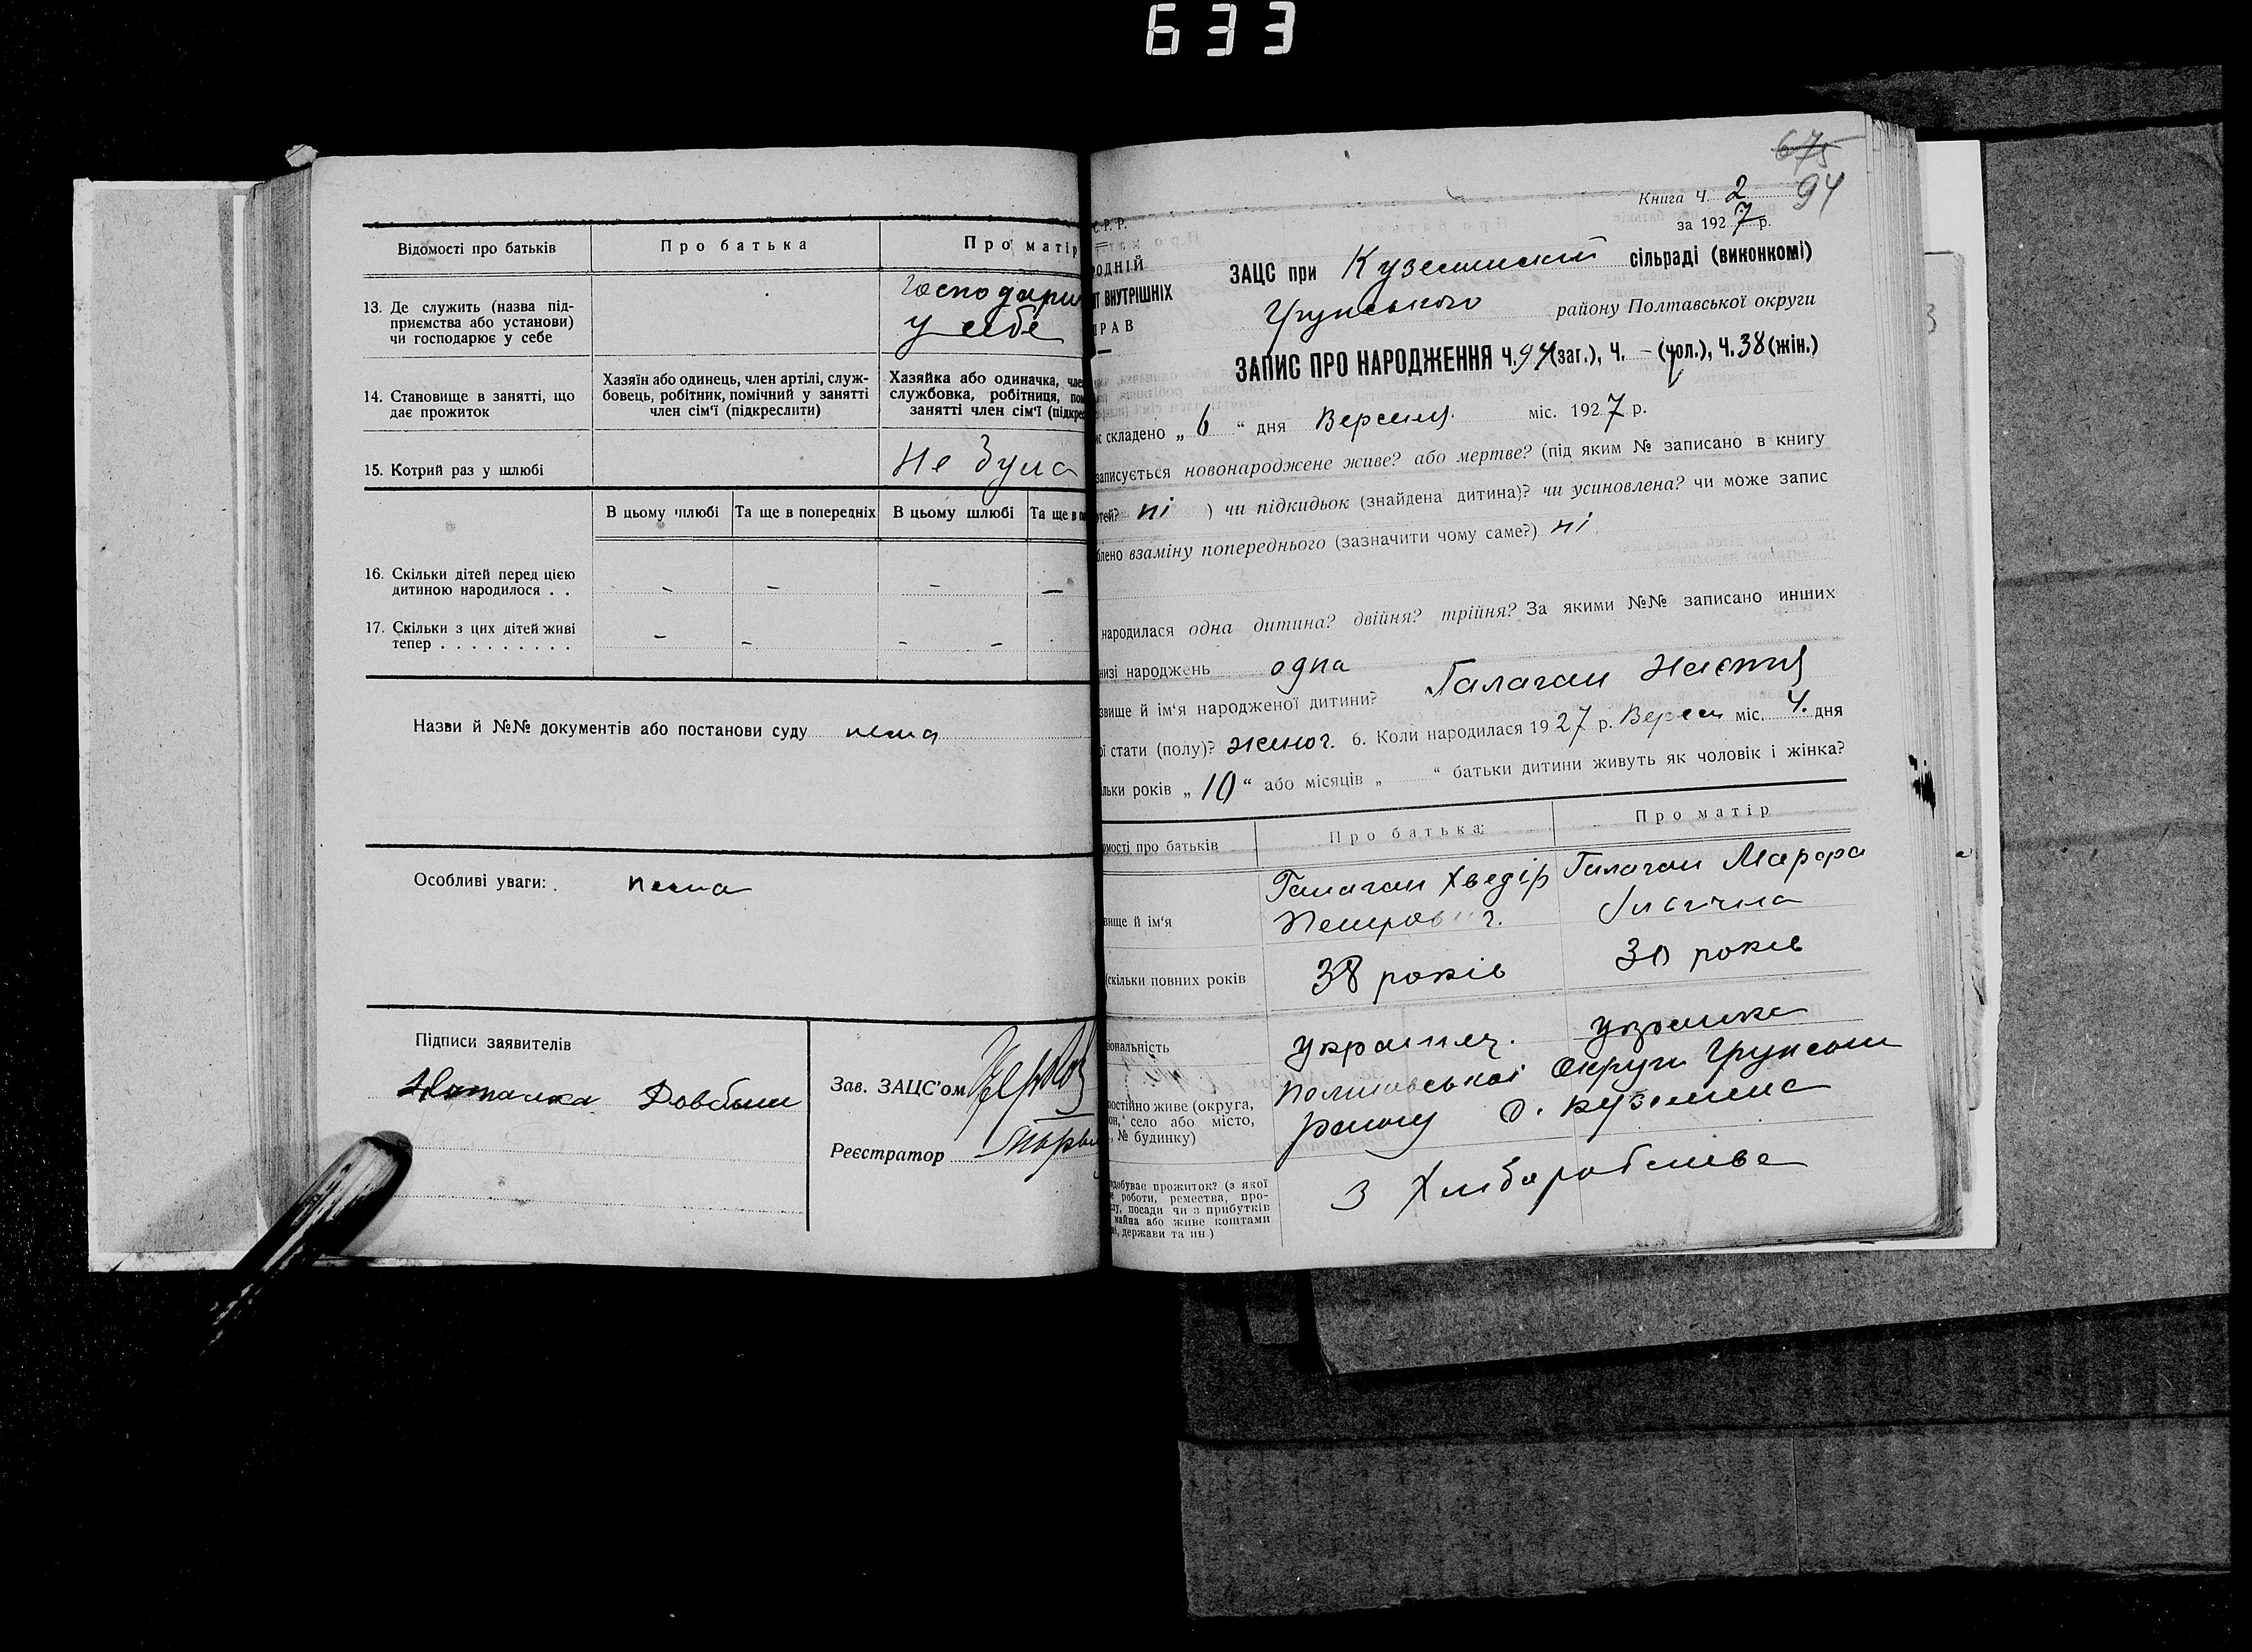 633
Відомості про батьків
Про батька
Про матір
13. Де служить (назва під-
приємства або установи)
чи господарює у себе
Господарює
у себе
14. Становище в занятті, що
дає прожиток
Хазяїн або одинець, член артілі, служ-
бовець, робітник, помічний у занятті
член сім'ї (підкреслити)
Хазяйка або одиначка, чле
службовка, робітниця, пом
занятті член сім'ї (підкрес
15. Котрий раз у шлюбі
Не була
В цьому шлюбі
Та ще в попередніх
В цьому шлюбі
Та ще в по
16. Скільки дітей перед цією
дитиною народилося . .
– – – –
17. Скільки з цих дітей живі
тепер . . . . . . . . .
– – – –
Назви й №№ документів або постанови суду нема
Особливі уваги: нема
Підписи заявителів
Наталка Довбиш
Зав. ЗАЦС'ом
Реєстратор
675
94
Книга Ч. 2
за 1927 р.
С.Р.Р.
РОДНІЙ
Т ВНУТРІШНІХ
ПРАВ
ЗАЦС при Куземинскій сільраді (виконкомі)
Грунського району Полтавської округи
ЗАПИС ПРО НАРОДЖЕННЯ Ч. 94 (заг.), Ч. – (чол.), Ч. 38 (жін.)
ис складено „ 6 “ дня Вересня міс. 1927 р.
записується новонароджене живе? або мертве? (під яким № записано в книгу
ртей? ні ) чи підкидьок (знайдена дитина)? чи усиновлена? чи може запис
блено взаміну попереднього (зазначити чому саме?) ні
народилася одна дитина? двійня? трійня? За якими №№ записано инших
низі народжень одна
звище й ім'я народженої дитини? Галаган Настя
ої стати (полу)? жіноч. 6. Коли народилася 1927 р. Вересн міс. 4. дня
льки років „ 10 “ або місяців „ “ батьки дитини живуть як чоловік і жінка?
омості про батьків
Про батька
Про матір
вище й ім'я
Галаган Хведір
Петрович.
Галаган Марфа
(скільки повних років
38 років
30 років
іональність
українец.
українка
постійно живе (округа,
он, село або місто,
, № будинку)
Полтавської Округи Грунсько
району с. Куземина
добуває прожиток? (з якої
е роботи, ремества, про-
лу, посади чи з прибутків
майна або живе коштами
ві, держави та ин)
З Хліборобства